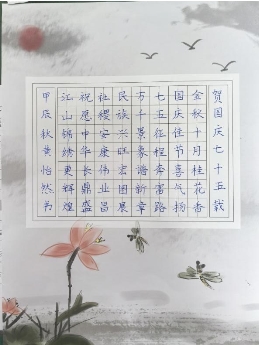 贺国庆七十五载
金秋十月桂花香
国庆佳节喜气扬
七五征程奔富路
万千景象谱新章
民族兴旺宏图展
社稷安康伟业昌
祝愿中华长鼎盛
江山锦绣更辉煌
甲辰秋黄怡然书